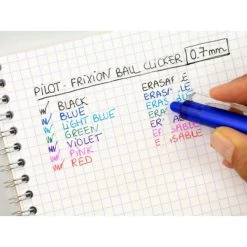 PILOT - FRIXION BALL CLICKER 0.7mm
BLACK ERASABLE
BLUE ERASABLE
LIGHT BLUE ERASABLE
GREEN ERASABLE
VIOLET ERASABLE
PINK ERASABLE
RED ERASABLE